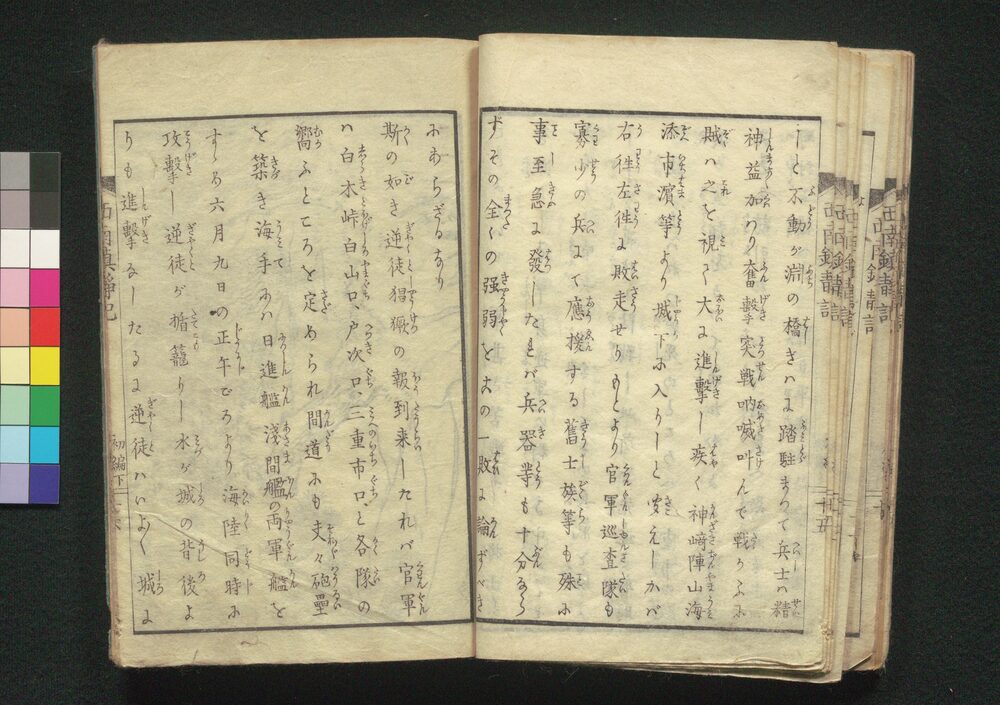 しと不動が淵の橋きハに踏駐まつて兵士ハ精
神益加ハり奮撃突戦吶喊叫んで戦かふに
賊ハ之を視て大に進撃し疾く神﨑陣山海
添市濱等より城下に入りしと変えしかバ
右徃左徃に敗走せりもとより官軍巡査隊も
寡少の兵にて應援する舊士族等も殊に
事至急に發したれバ兵器等も十分ならら
ずその全くの强弱をこの一敗に論ずべき
にあらざるなり
斯の如き逆徒猖獗の報到来したれバ官軍
ハ白木峠白山口、戸次口、三重市口、と各隊の
嚮ふところを定められ間道にも丈々砲壘
を築き海手にハ日進艦浅間艦の両軍艦を
する六月九日の正午ごろより海陸同時に
攻擊し逆徒が循籠りし水が城の背後よ
りも進擊なしたるに逆徒ハいよ〱城に
西南鎮静記
初編下
十五